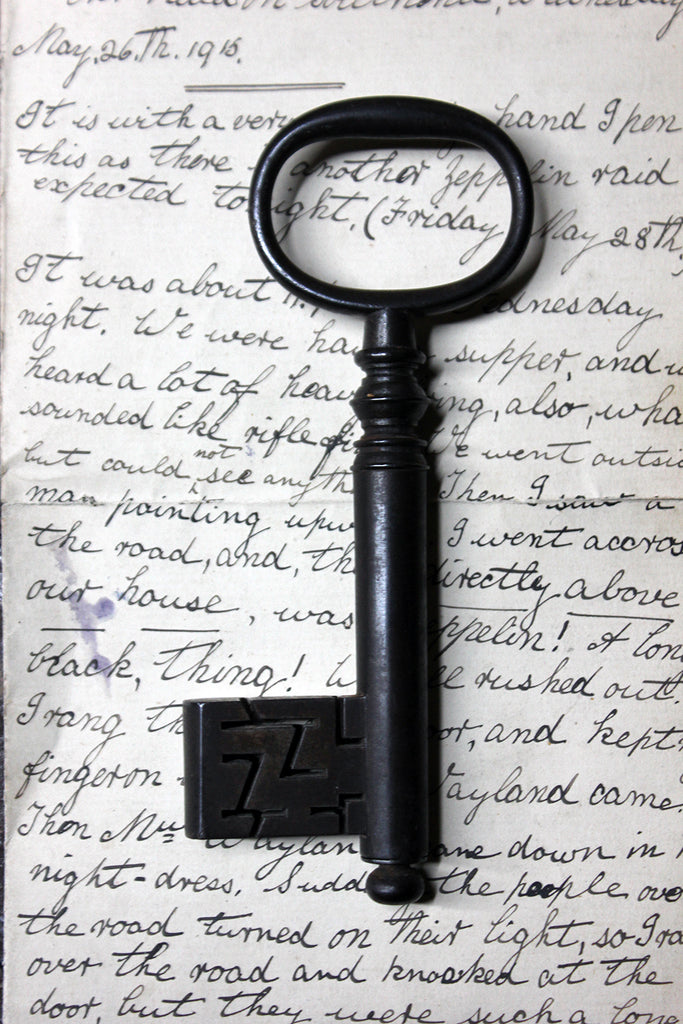 raid on Southend, Wednesday
May. 26. Th. 1915.
It is with a very hand I pen
this as there another Zeppelin raid
expected tonight. (Friday May 28th,
It was about Wednesday
night. We were ha supper, and w
heard a lot of heav ing, also, wha
sounded like rifle fi We went outsi
but could not see anyth Then I saw a
man pointing upw I went accros
the road, and, th directly above
our house, was eppelin! A lon
black, thing! W ll rushed out.
I rang th or, and kept
finger on Wayland came.
Then Mrs Waylan ame down in
night-dress. Sudd the people ove
the road turned on their light, so I ra
over the road and knocked at the
door, but they were such a long